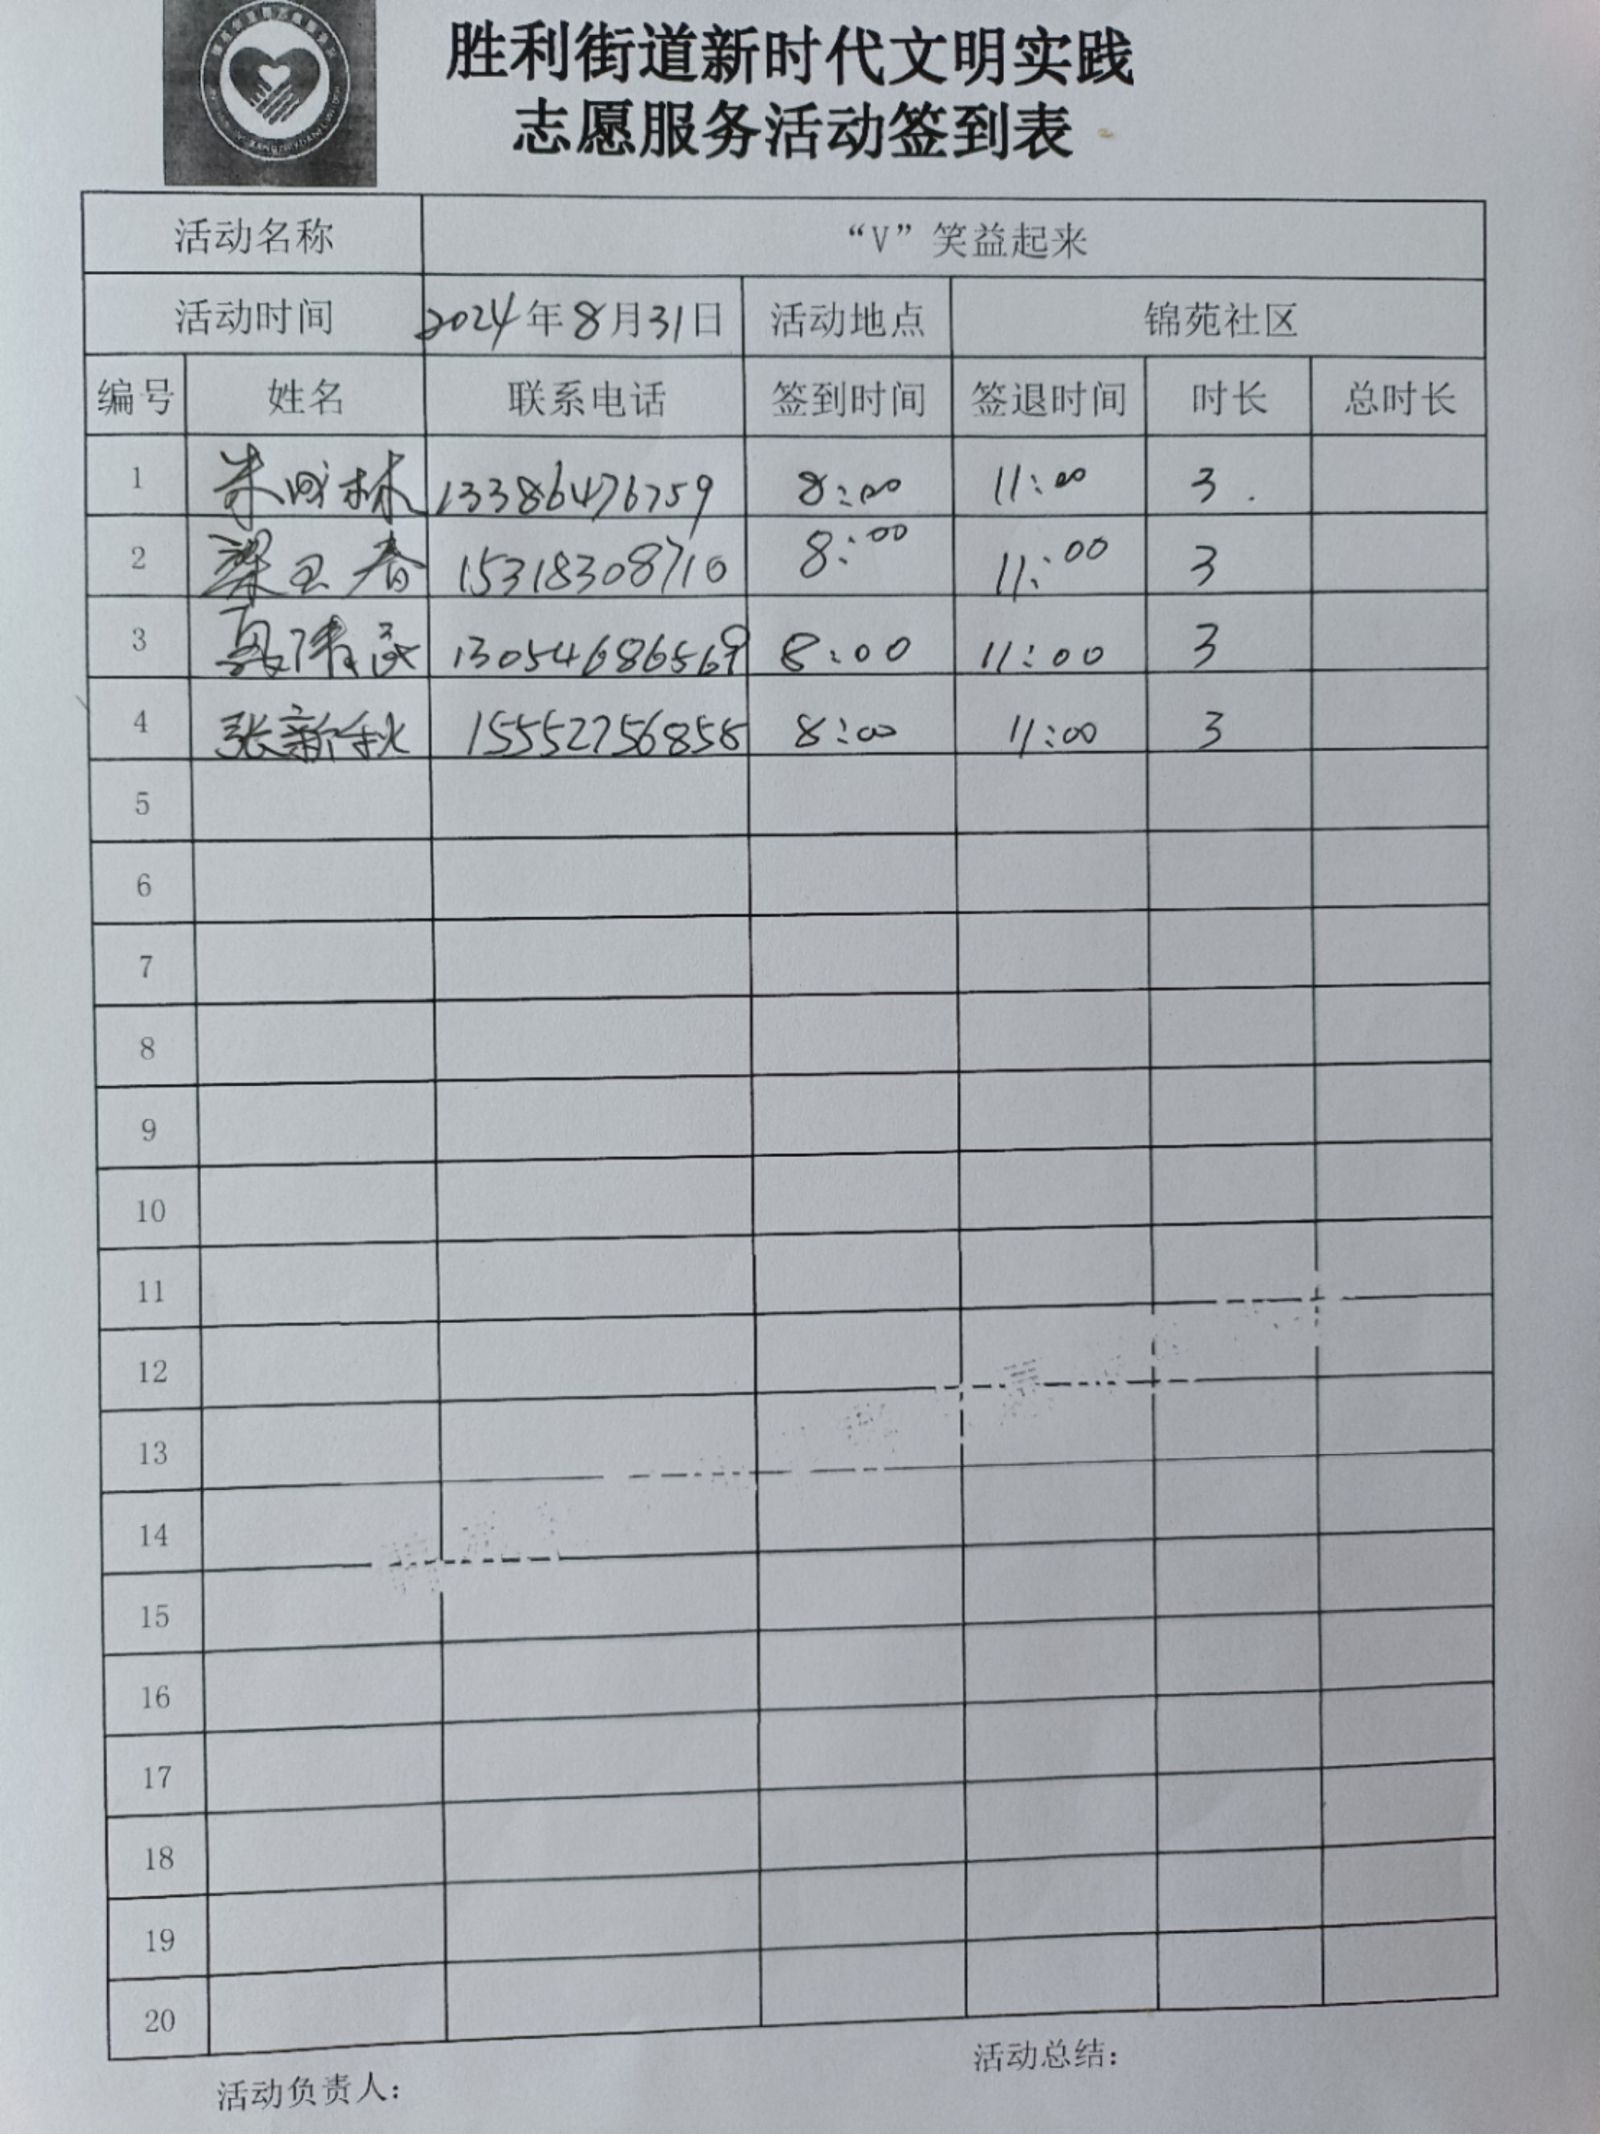 胜利街道新时代文明实践
志愿服务活动签到表
活动名称 “V”笑益起来
活动时间 2024年8月31日 活动地点 锦苑社区
编号 姓名 联系电话 签到时间 签退时间 时长 总时长
1 朱成林 13386476759 8:00 11:00 3.
2 梁玉春 15318308710 8:00 11:00 3
3 13054686569 8:00 11:00 3
4 张新秋 15552756856 8:00 11:00 3
5
6
7
8
9
10
11
12
13
14
15
16
17
18
19
20
活动总结：
活动负责人：